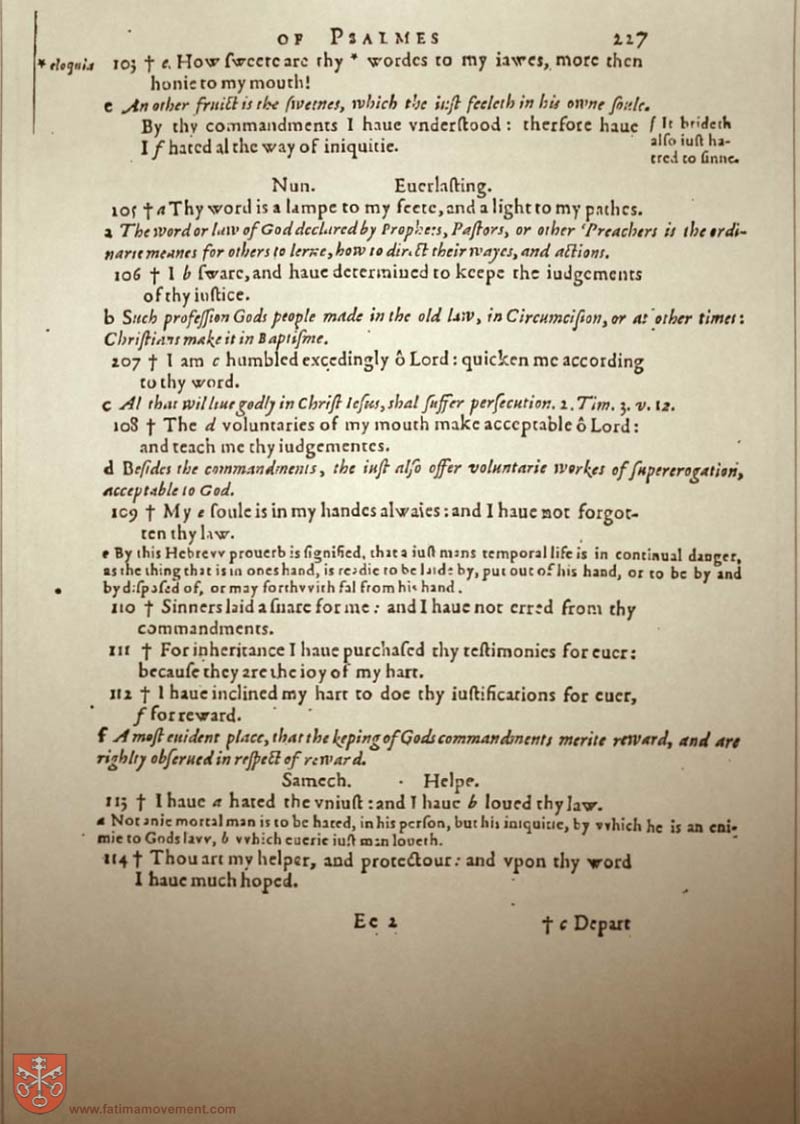 OF PSALMES 227
* eloquia
103 † e. How ſweete are thy * wordes to my iawes, more then
honie to my mouth!
e An other fruict is the ſwetnes, which the iuſt feeleth in his owne ſoule.
By thy commandments I haue vnderſtood: therfore haue
I f hated al the way of iniquitie.
f It brideth
alſo iuſt ha-
tred to ſinne.
Nun. Euerlaſting.
105 † a Thy word is a lampe to my feete, and a light to my pathes.
a The word or law of God declared by Prophets, Paſtors, or other Preachers is the ordi-
narie meanes for others to lerne, how to direct their wayes, and actions.
106 † I b ſware, and haue determined to keepe the iudgements
of thy iuſtice.
b Such profeſſion Gods people made in the old law, in Circumciſion, or at other times:
Chriſtians make it in Baptiſme.
207 † I am c humbled excedingly ô Lord: quicken me according
to thy word.
c Al that wil liue godly in Chriſt Ieſus, shal ſuffer perſecution. 2. Tim. 3. v. 12.
108 † The d voluntaries of my mouth make acceptable ô Lord:
and teach me thy iudgementes.
d Beſides the commandments, the iuſt alſo offer voluntarie workes of ſupererogation,
acceptable to God.
109 † My e ſoule is in my handes alwaies: and I haue not forgot-
ten thy law.
e By this Hebrevv prouerb is ſignified, that a iuſt mans temporal life is in continual danger,
as the thing that is in ones hand, is readie to be laide by, put out of his hand, or to be by and
by diſpoſed of, or may forthvvith fal from his hand.
110 † Sinners laid a ſnare for me: and I haue not erred from thy
commandments.
111 † For inheritance I haue purchaſed thy teſtimonies for euer:
becauſe they are the ioy of my hart.
112 † I haue inclined my hart to doe thy iuſtifications for euer,
f for reward.
f A moſt euident place, that the keping of Gods commandments merite reward, and are
righlty obſerued in reſpect of reward.
Samech. Helpe.
113 † I haue a hated the vniuſt: and I haue b loued thy law.
a Not anie mortal man is to be hated, in his perſon, but his iniquitie, by vvhich he is an eni-
mie to Gods lavv, b vvhich euerie iuſt man loueth.
114 † Thou art my helper, and protectour: and vpon thy word
I haue much hoped.
Ee 2 † c Depart
www.fatimamovement.com